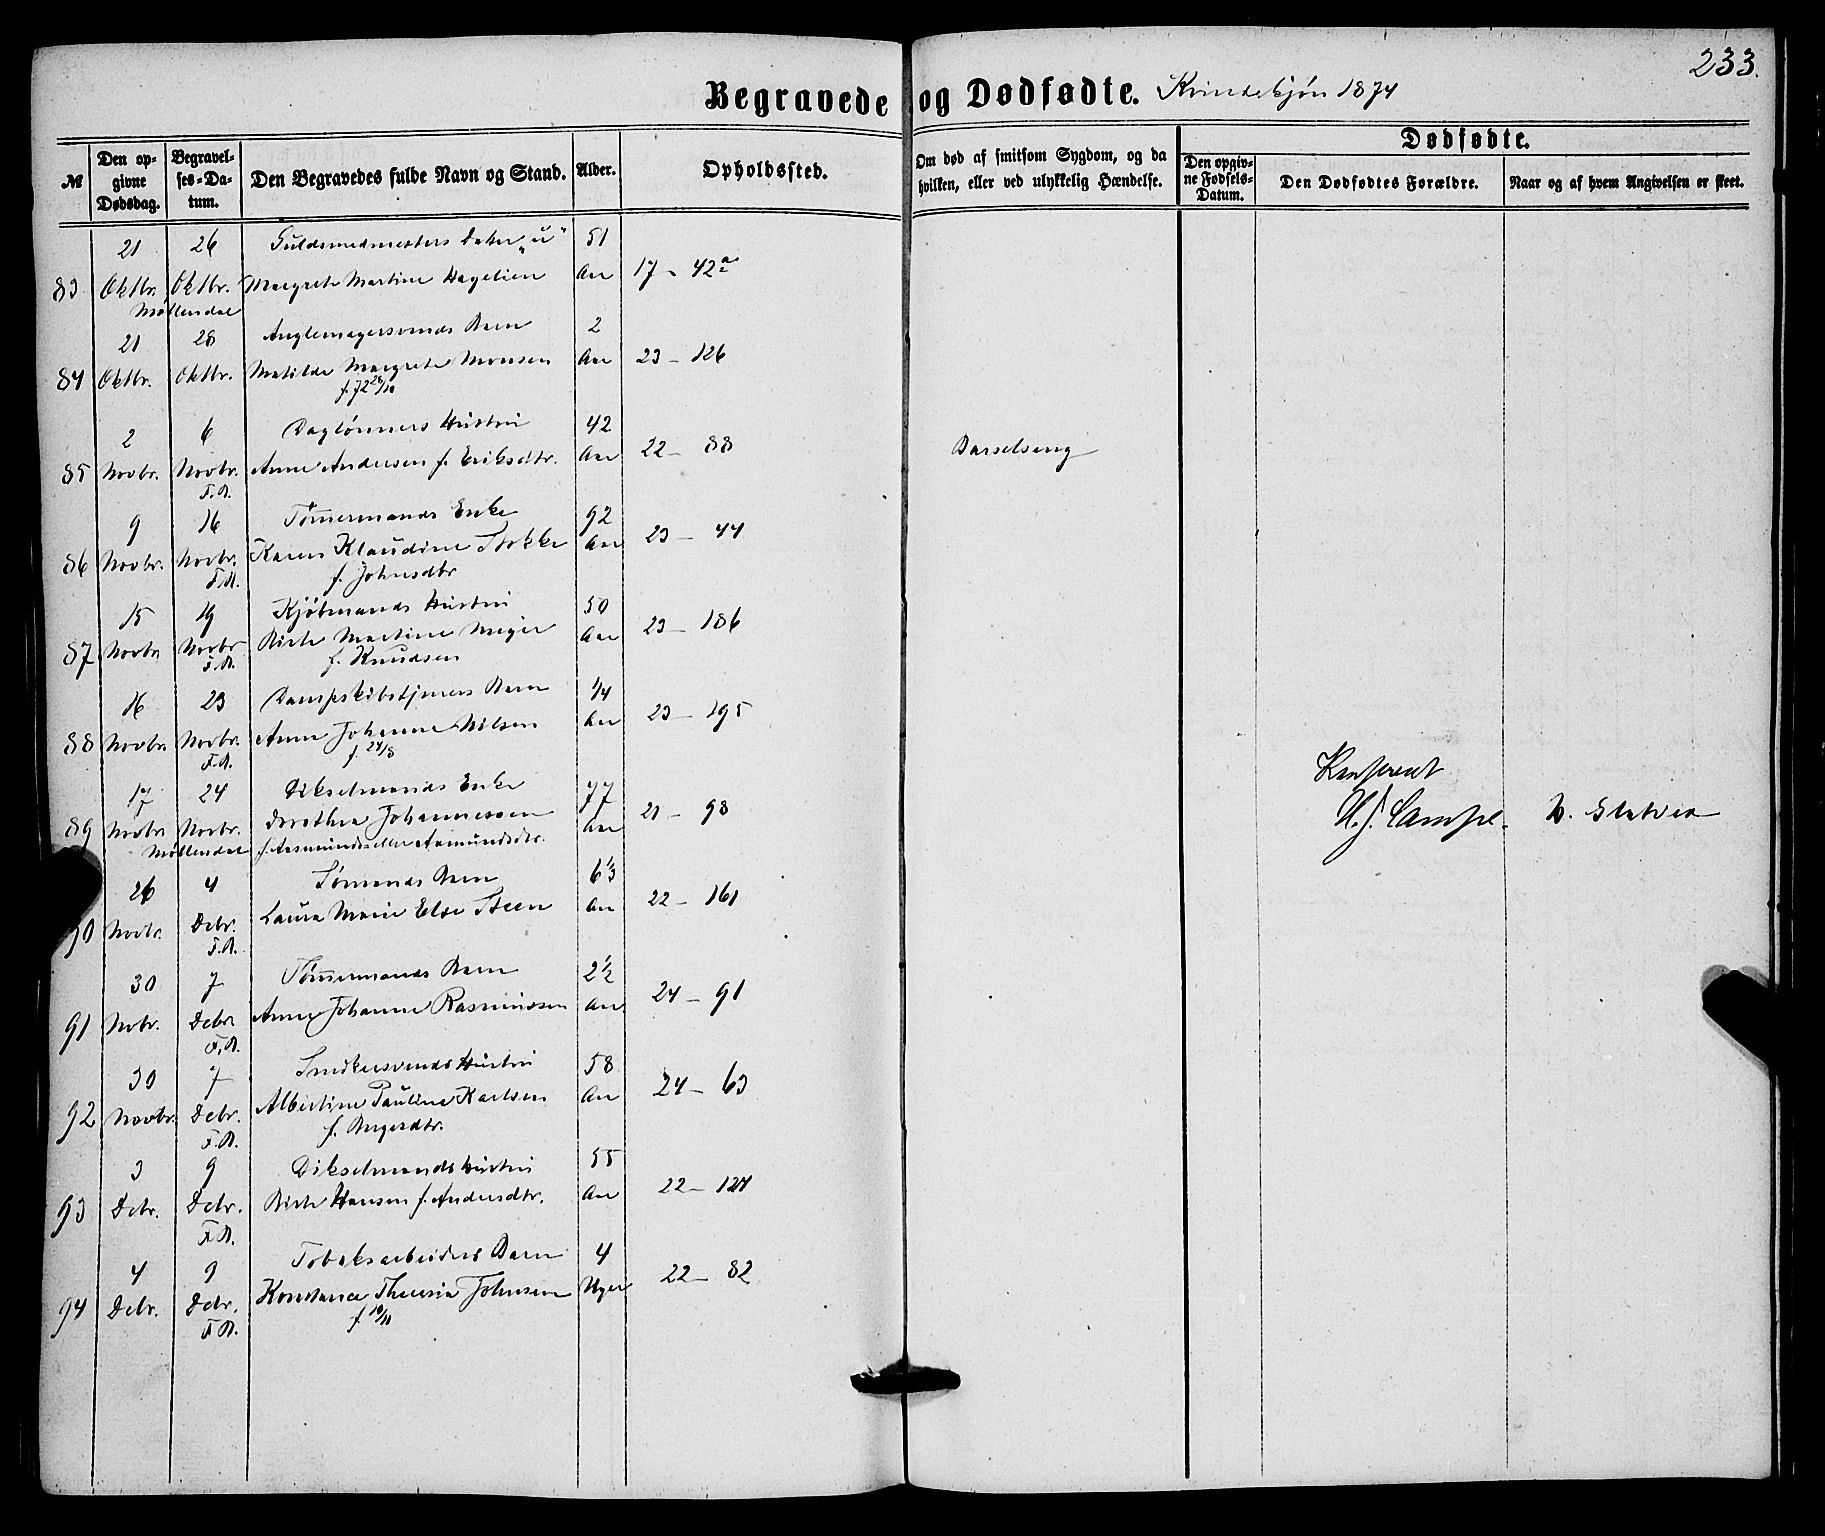 233.
Begravede og Dødfødte. Kvindekjøn 1874
№
Den opgivne Dødsdag.
Begravelses-Datum.
Den Begravedes fulde Navn og Stand.
Alder.
Opholdssted.
Om død af smitsom Sygdom, og da hvilken, eller ved ulykkelig Hændelse.
Dødfødte.
Den opgivne Fødsels-Datum.
Den Dødfødtes Forældre.
Naar og af hvem Angivelsen er skeet.
21 26 Guldsmedmesters Datter "u" 51
83 Oktbr. Oktbr. Margrete Martine Hagelien Aar 17 - 42a
Møllendal
21 28 Barn 2
84 Oktbr. Oktbr. Matilde Margrete Monsen Aar 23 - 126
f. 72 28/10
2 6 Daglønners Hustru 42
85 Novbr. Novbr. Anne Andersen f. Eriksdtr. Aar 22 - 88 Barselseng
F.A.
9 16 Tømermands Enke 92
86 Novbr. Novbr. Karen Klaudine Stokke Aar 23 - 44
F.A. f. Johnsdtr
15 19 Kjøbmands Hustru 50
87 Novbr Novbr Birte Martine Meyer Aar 23 - 186
F.A. f. Knudsen
16 23 Dampskibstjeners Barn 1/4
88 Novbr. Novbr. Anne Johanne Nilsen Aar 23 - 195
F.A. f. 24/8
17 24 Bikselmands Enke 77
89 Novbr Novbr. Dorothea Johannessen Aar 21 - 98
Møllendal f. Aasmunds eller Aamundsdtr.
Konfereret
26 4 Sømands Barn 6 1/3
90 Novbr. Debr. Laura Marie Else Steen Aar 22 - 161
F.A.
30 7 Tømermands Barn 2 1/2
91 Nobr. Debr Anne Johanne Rasmussen Aar 24 - 91
F.A.
30 7 Snedkersvends Hustru 58
92 Novbr. Debr. Albertine Pauline Karlsen Aar 24 - 63
F.A. f. Ingersdtr.
3 9 Bikselmands Hustru 55
93 Debr. Debr. Birte Hansen f. Andersdtr. Aar 22 - 127
F.A.
4 9 Tobaksarbeiders Barn 4
94 Debr. Debr. Konstance Theresia Johnsen Uger 22 - 82
F.A. f. 10/11